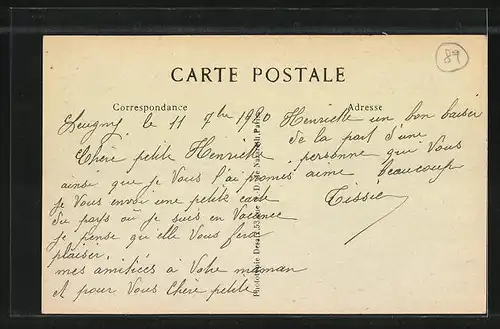 89
CARTE POSTALE
Correspondance
Adresse
Leugny le 11 7bre 1920
Chère petite Henriette
ainsi que je Vous l'ai promis
je Vous envoi une petite carte
du pays où je suis en Vacance
je pense qu'elle Vous fera
plaisir.
mes amitiées à Votre maman
et pour Vous Chère petite
Henriette un bon baiser
de la part d'une
personne que Vous
aime beaucoup
Tissié
Phototypie Desaix, 53, rue N.-D. de Nazareth Paris